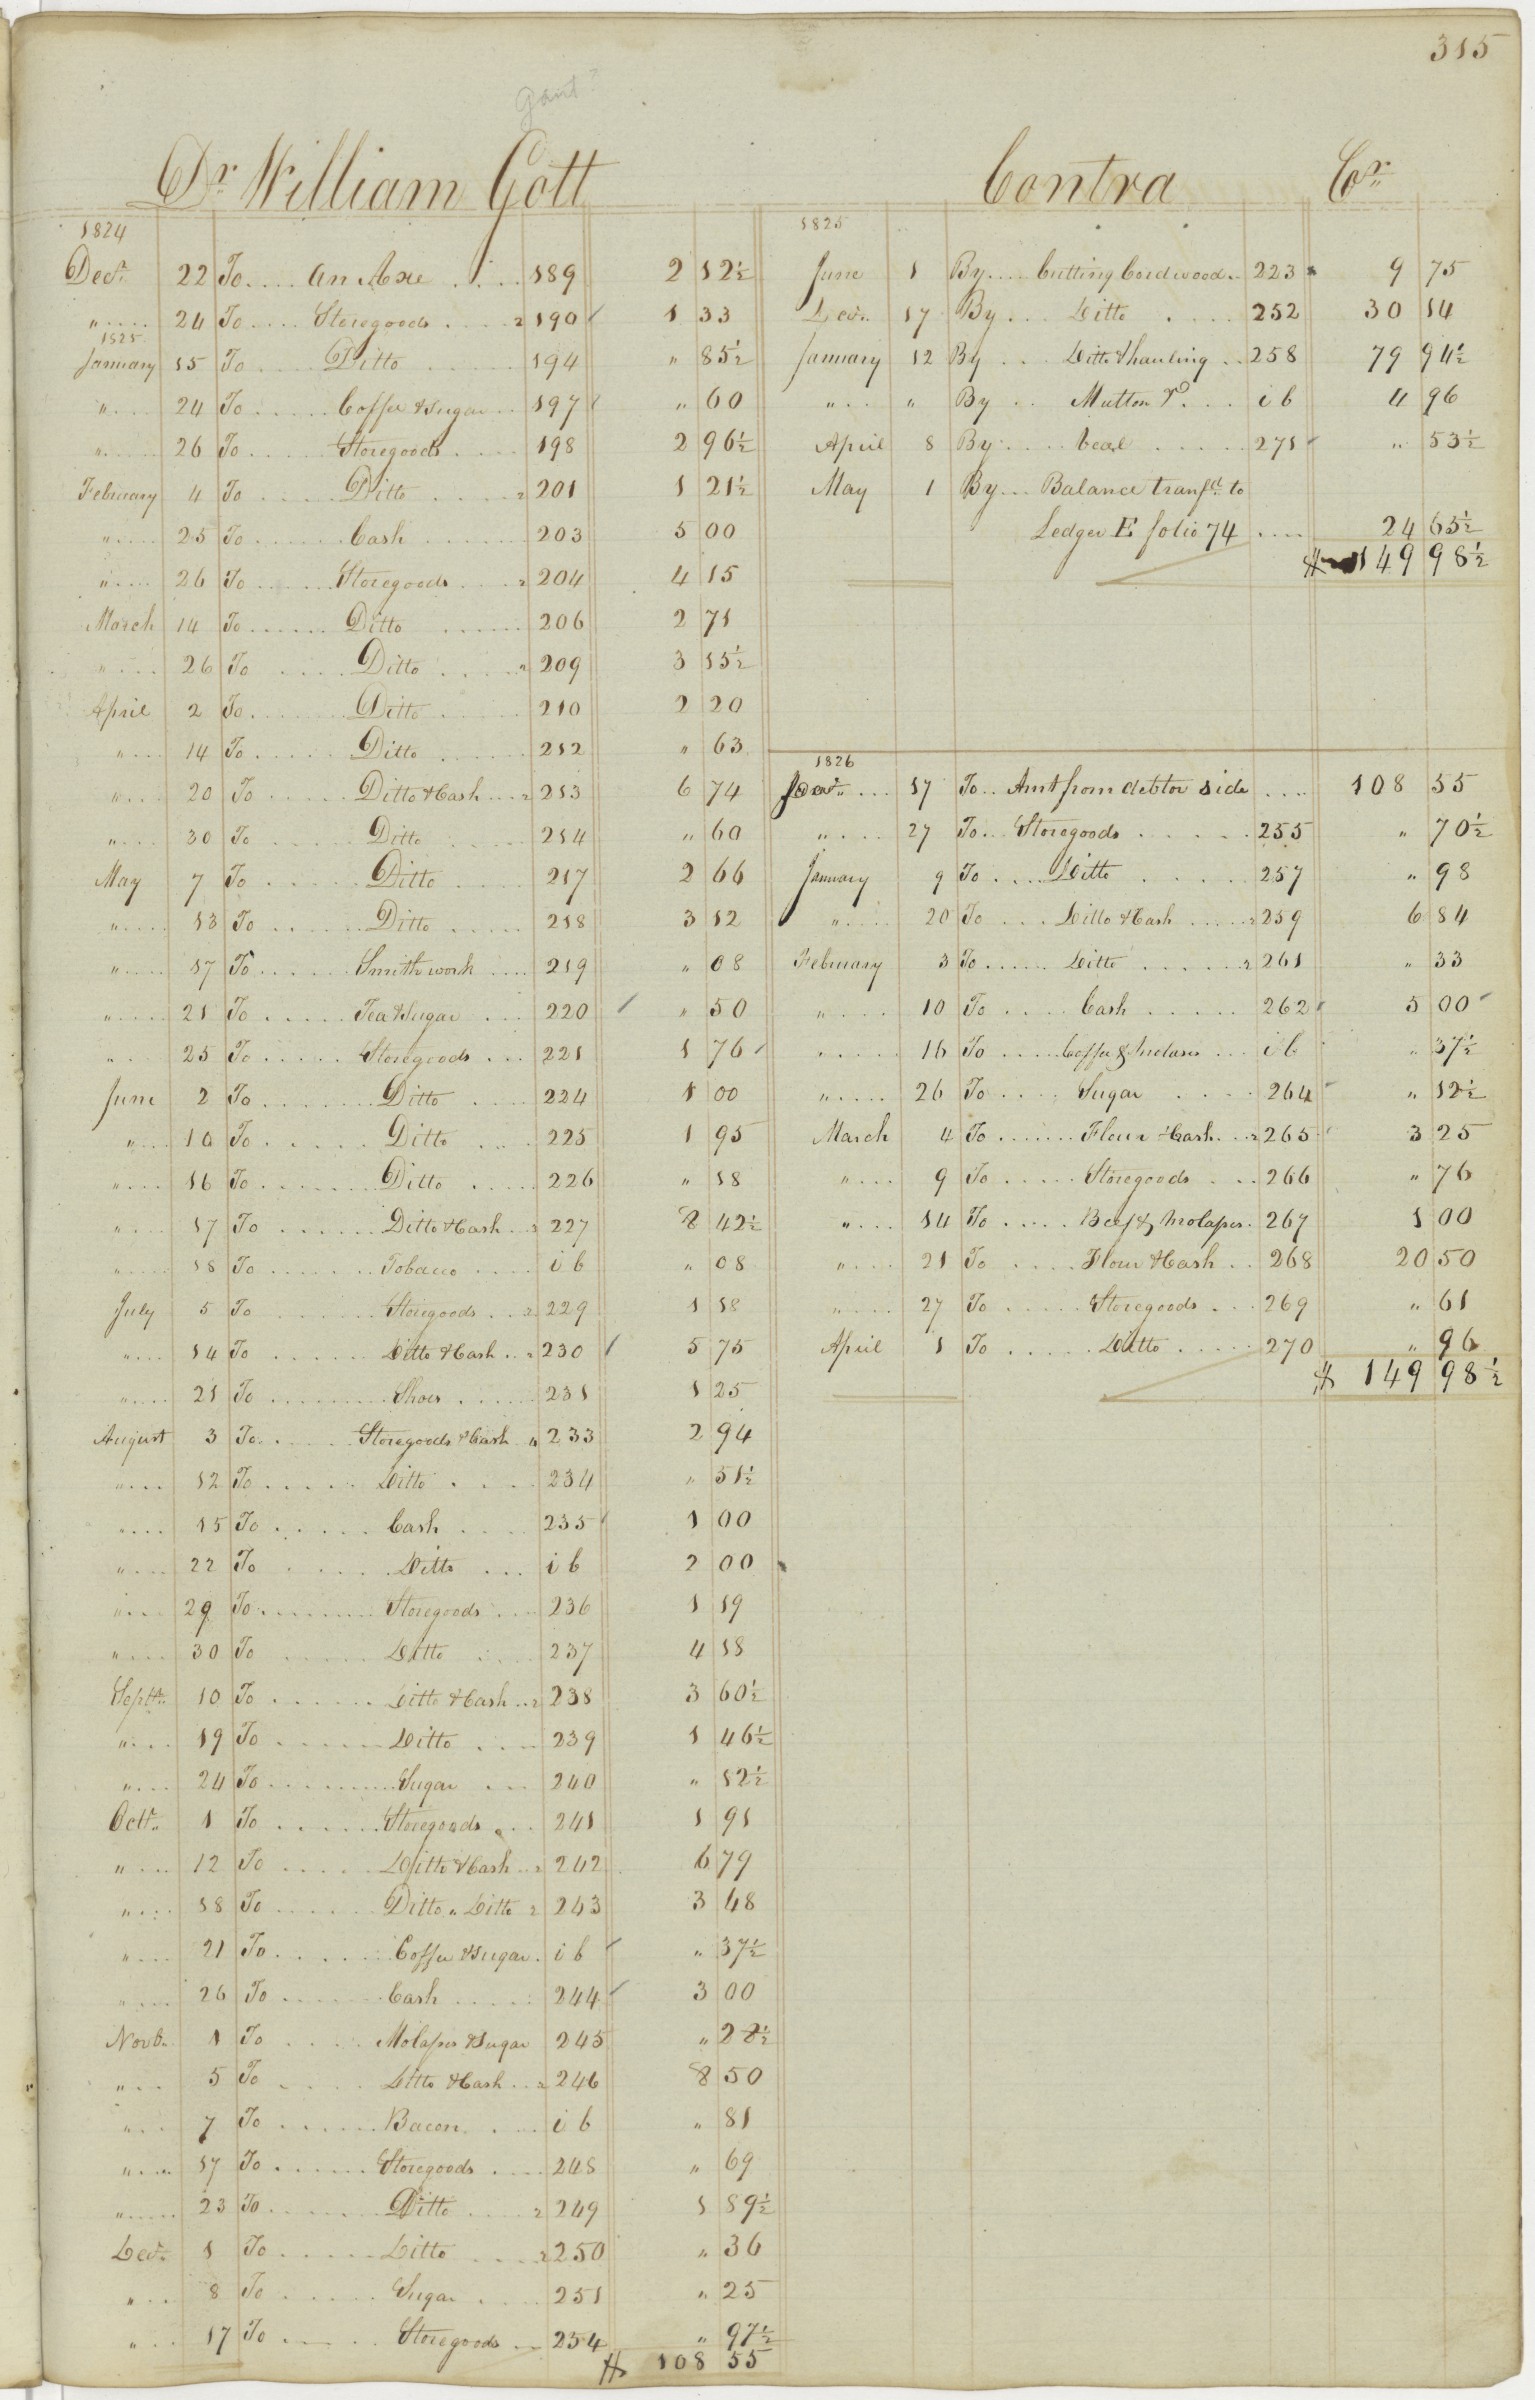 315
gant?
Dr. William Gott
1824
Decr. 22 To .... An Axe .... 189 2 12½
" .... 24 To .... Storegoods .... 2 190 1 33
1825
January 15 To .... Ditto .... 194 " 85½
" .... 24 To .... Coffee & Sugar .. 197 " 60
" .... 26 To .... Storegoods .... 198 2 96½
February 4 To .... Ditto .... 2 201 1 21½
" .... 25 To .... Cash .... 203 5 00
" .... 26 To .... Storegoods .... 2 204 4 15
March 14 To .... Ditto .... 206 2 71
" .... 26 To .... Ditto .... " 209 3 15½
April 2 To .... Ditto .... 210 2 20
" .... 14 To .... Ditto .... 212 " 63
" .... 20 To .... Ditto & Cash ... 2 213 6 74
" .... 30 To .... Ditto .... 214 " 60
May 7 To .... Ditto .... 217 2 66
" .... 13 To .... Ditto .... 218 3 12
" .... 17 To .... Smith work .... 219 " 08
" .... 21 To .... Tea & Sugar ... 220 " 50
" .... 25 To .... Storegoods ... 221 1 76
June 2 To .... Ditto .... 224 1 00
" .... 10 To .... Ditto .... 225 1 95
" .... 16 To .... Ditto .... 226 " 18
" .... 17 To .... Ditto & Cash .. 2 227 8 42½
" .... 18 To .... Tobacco .... ib " 08
July 5 To .... Storegoods .. 2 229 1 18
" .... 14 To .... Ditto & Cash .. 2 230 5 75
" .... 21 To .... Shoes .... 231 1 25
August 3 To .... Storegoods & Cash " 233 2 94
" .... 12 To .... Ditto .... 234 " 51½
" .... 15 To .... Cash .... 235 1 00
" .... 22 To .... Ditto ... ib 2 00
" .... 29 To .... Storegoods ... 236 1 19
" .... 30 To .... Ditto .... 237 4 18
Septr. 10 To .... Ditto & Cash .. 2 238 3 60½
" .... 19 To .... Ditto .... 239 1 46½
" .... 24 To .... Sugar ... 240 " 12½
Octr. 1 To .... Storegoods ... 241 1 91
" .... 12 To .... Ditto & Cash .. 2 242 6 79
" .... 18 To .... Ditto " Ditto 2 243 3 48
" .... 21 To .... Coffee & Sugar . ib " 37½
" .... 26 To .... Cash .... 244 3 00
Novb. 1 To .... Molasses & Sugar 245 " 28½
" .... 5 To .... Ditto & Cash .. 2 246 8 50
" .... 7 To .... Bacon .... ib " 81
" .... 17 To .... Storegoods .... 248 " 69
" .... 23 To .... Ditto .... 2 249 1 89½
Decr. 1 To .... Ditto .... 2 250 " 36
" .... 8 To .... Sugar .... 251 " 25
" .... 17 To .... Storegoods .. 254 " 97½
$ 108 55
Contra Cr.
1825
June 1 By .... Cutting Cordwood .. 223 9 75
Decr. 17 By ... Ditto .... 252 30 14
January 12 By ... Ditto & hauling .. 258 79 94½
" ... " By .. Mutton ... ib 4 96
April 8 By .... Veal .... 271 " 53½
May 1 By ... Balance transfd. to
Ledger E folio 74 .... 24 65½
$ 149 98½
1826
Decr. ... 17 To .. Amt from debtor side .... 108 55
" .... 27 To .. Storegoods .... 255 " 70½
January 9 To .... Ditto .... 257 " 98
" .... 20 To ... Ditto & Cash .... 2 259 6 84
February 3 To .... Ditto .... 2 261 " 33
" .... 10 To .... Cash .... 262 5 00
" .... 16 To .... Coffee & Molasses ... ib " 37½
" .... 26 To .... Sugar .... 264 " 12½
March 4 To .... Flour & Cash .. 2 265 3 25
" .... 9 To .... Storegoods ... 266 " 76
" ... 14 To .... Beef & Molasses . 267 1 00
" .... 21 To .... Flour & Cash .. 268 20 50
" .... 27 To .... Storegoods ... 269 " 61
April 1 To .... Ditto .... 270 " 96
$ 149 98½